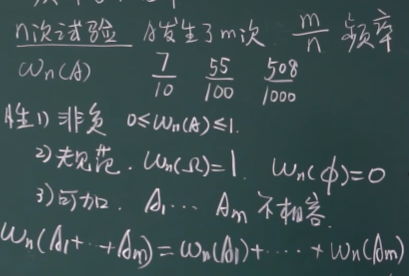 n次试验 A发生了m次 m/n 频率
ωn(A) 7/10 55/100 508/1000
性 1) 非负 0≤ωn(A)≤1.
2) 规范. ωn(Ω)=1. ωn(φ)=0
3) 可加. A1 ... Am 不相容.
ωn(A1+...+Am)=ωn(A1)+....+ωn(Am)